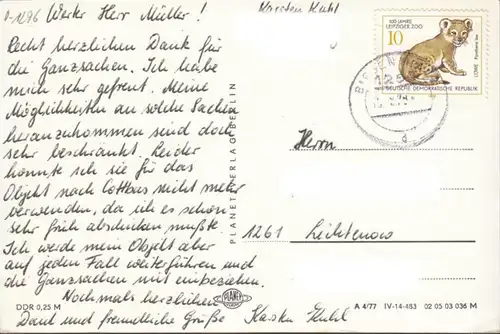 D-1296 Werter Herr Müller!
Karsten Kuhl
Recht herzlichen Dank für
die Ganzsachen. Ich habe
mich sehr gefreut. Meine
Möglichkeiten an solche Sachen
heranzukommen sind doch
sehr beschränkt. Leider
konnte ich sie für das
Objekt nach Cottbus nicht mehr
verwenden, da ich es schon
sehr früh abschicken mußte.
Ich werde mein Objekt aber
auf jeden Fall weiterführen und
die Ganzsachen mit einbeziehen.
Nochmals herzlichen
Dank und freundliche Grüße Karsten Kuhl
DDR 0,25 M
PLANET-VERLAG BERLIN
PLANET
100 JAHRE
LEIPZIGER ZOO
10
LÖWE Panthera leo
DEUTSCHE DEMOKRATISCHE REPUBLIK
Herrn
1261 Lichtenow
A 4/77 IV-14-483 02 05 03 036 M